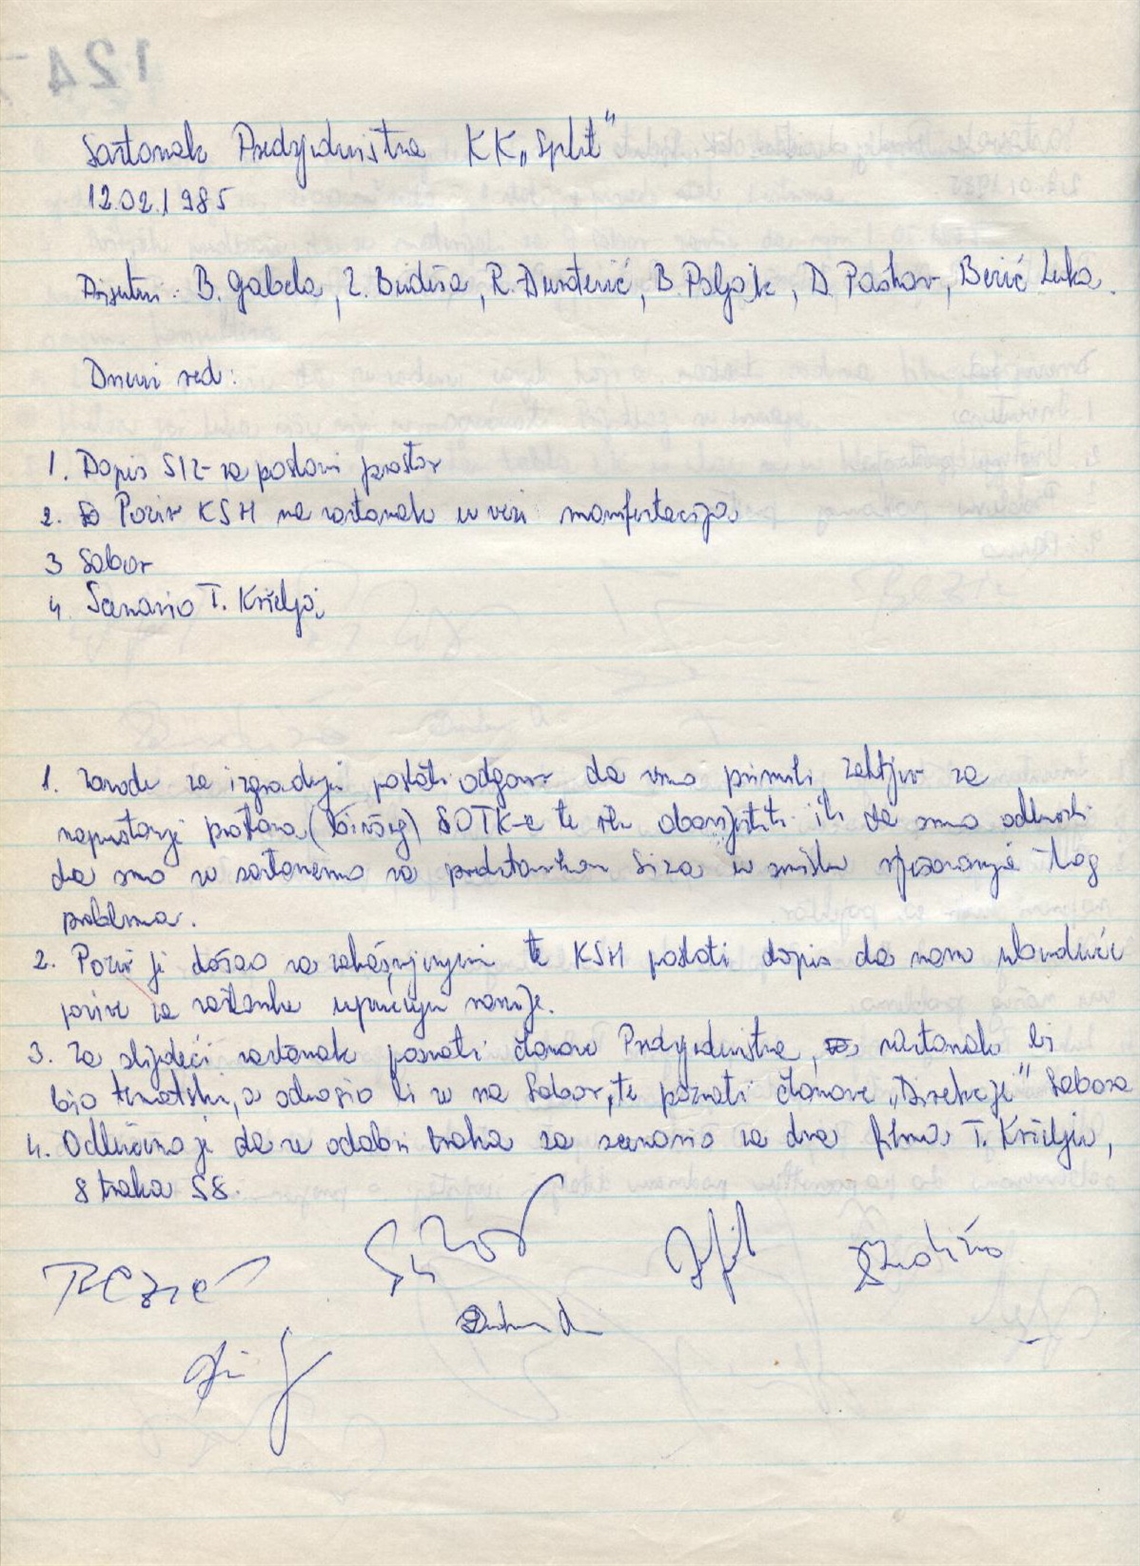 Sastanak Predsjedništva KK „Split"
12.02.1985
Prisutni: B. Gabela, Z. Budiša, R. Durderić, B. Poljak, D. Paškov, Bezić Luka.
Dnevni red:
1. Dopis SIZ-za poslovni prostor
2. Poziv KSH na sastanak u vezi manifestacija
3 Sabor
4. Scenario T. Krželja
1. Zavodu za izgradnju poslati odgovor da smo primili zahtjev za
napuštanje prostora (bivšeg) SOTK-a te ih obavijestiti ih da smo odlučili
da smo se sastanemo sa predstavnikom Siza u smislu rješavanja tog
problema.
2. Poziv je došao sa zakašnjenjem te KSH poslati dopis da nam ubuduće
pozive za sastanke upućuju ranije.
3. Za slijedeći sastanak pozvati članove Predsjedništva, sastanak bi
bio tematski, a odnosio bi se na Sabor, te pozvati članove „Direkcije" Sabora
4. Odlučeno je da se odobri traka za scenario za dva filma T. Krželja,
8 traka S8.